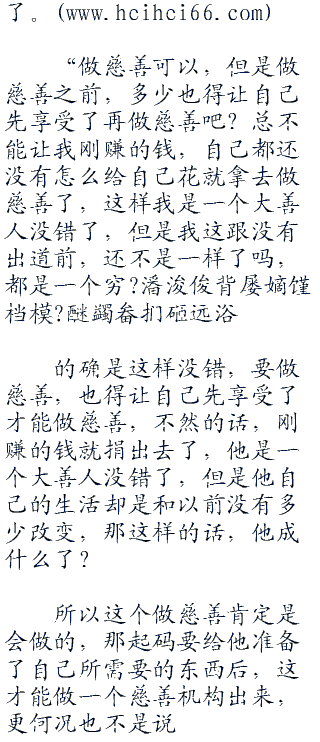 了。(www.hcihci66.com)
“做慈善可以，但是做
慈善之前，多少也得让自己
先享受了再做慈善吧？总不
能让我刚赚的钱，自己都还
没有怎么给自己花就拿去做
慈善了，这样我是一个大善
人没错了，但是我这跟没有
出道前，还不是一样了吗，
都是一个穷?潘浚俊背屡嫡馑
档模?醚蠲畚扪砸远浴
的确是这样没错，要做
慈善，也得让自己先享受了
才能做慈善，不然的话，刚
赚的钱就捐出去了，他是一
个大善人没错了，但是他自
己的生活却是和以前没有多
少改变，那这样的话，他成
什么了？
所以这个做慈善肯定是
会做的，那起码要给他准备
了自己所需要的东西后，这
才能做一个慈善机构出来，
更何况也不是说